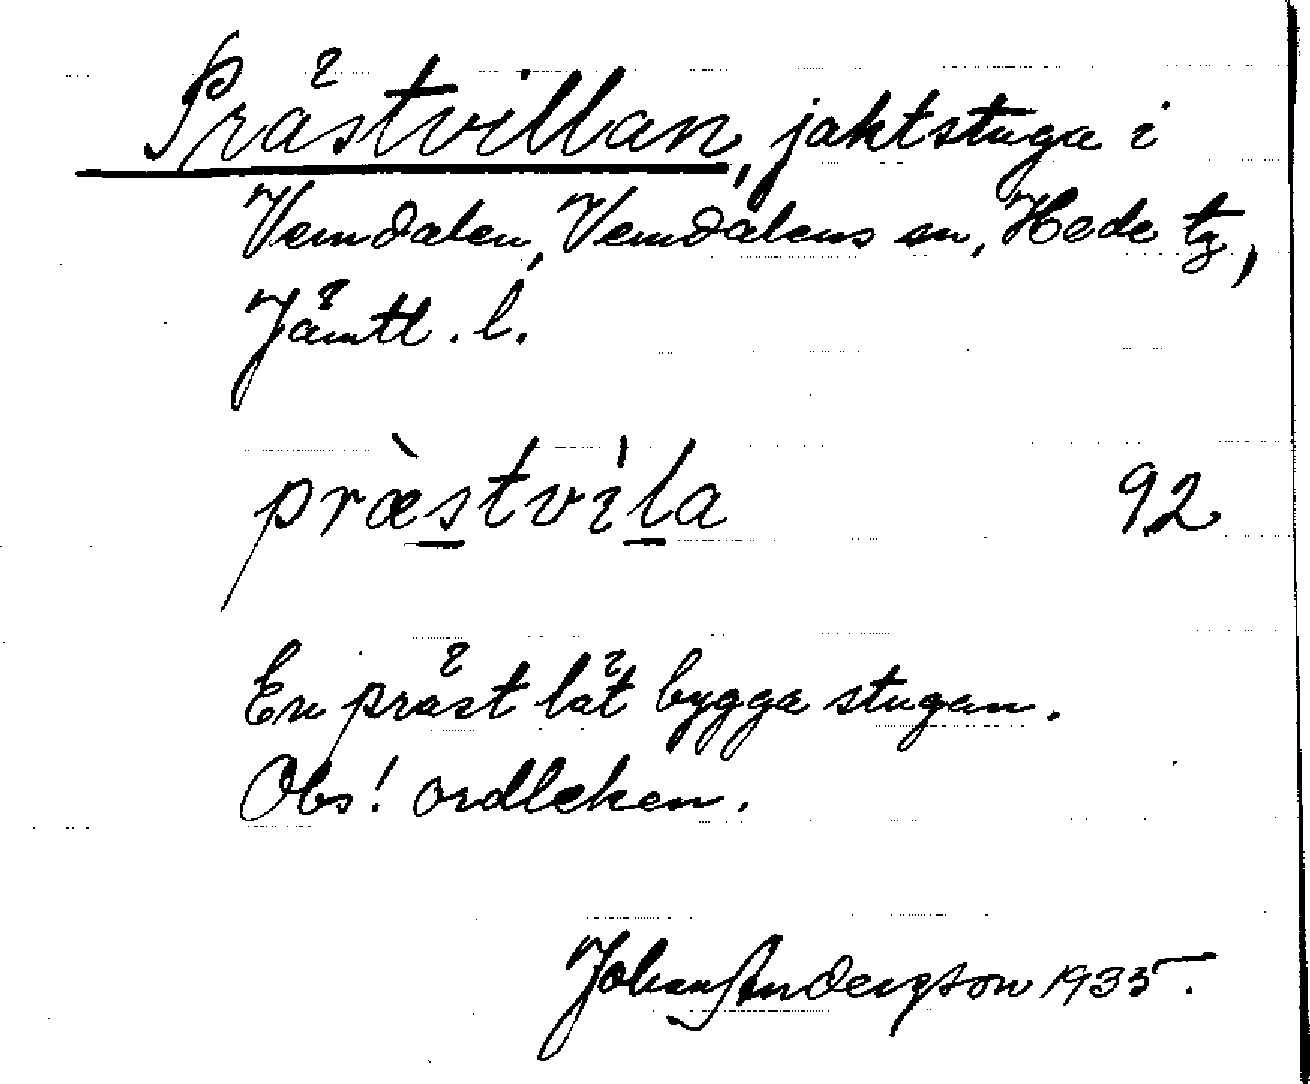 Prästvillan, jaktstuga i
Vemdalen, Vemdalens sn, Hede tg,
Jämtl. l.
præ̀stvìla 92
En präst lät bygga stugan.
Obs! ordleken.
Johan Anderzson 1935.